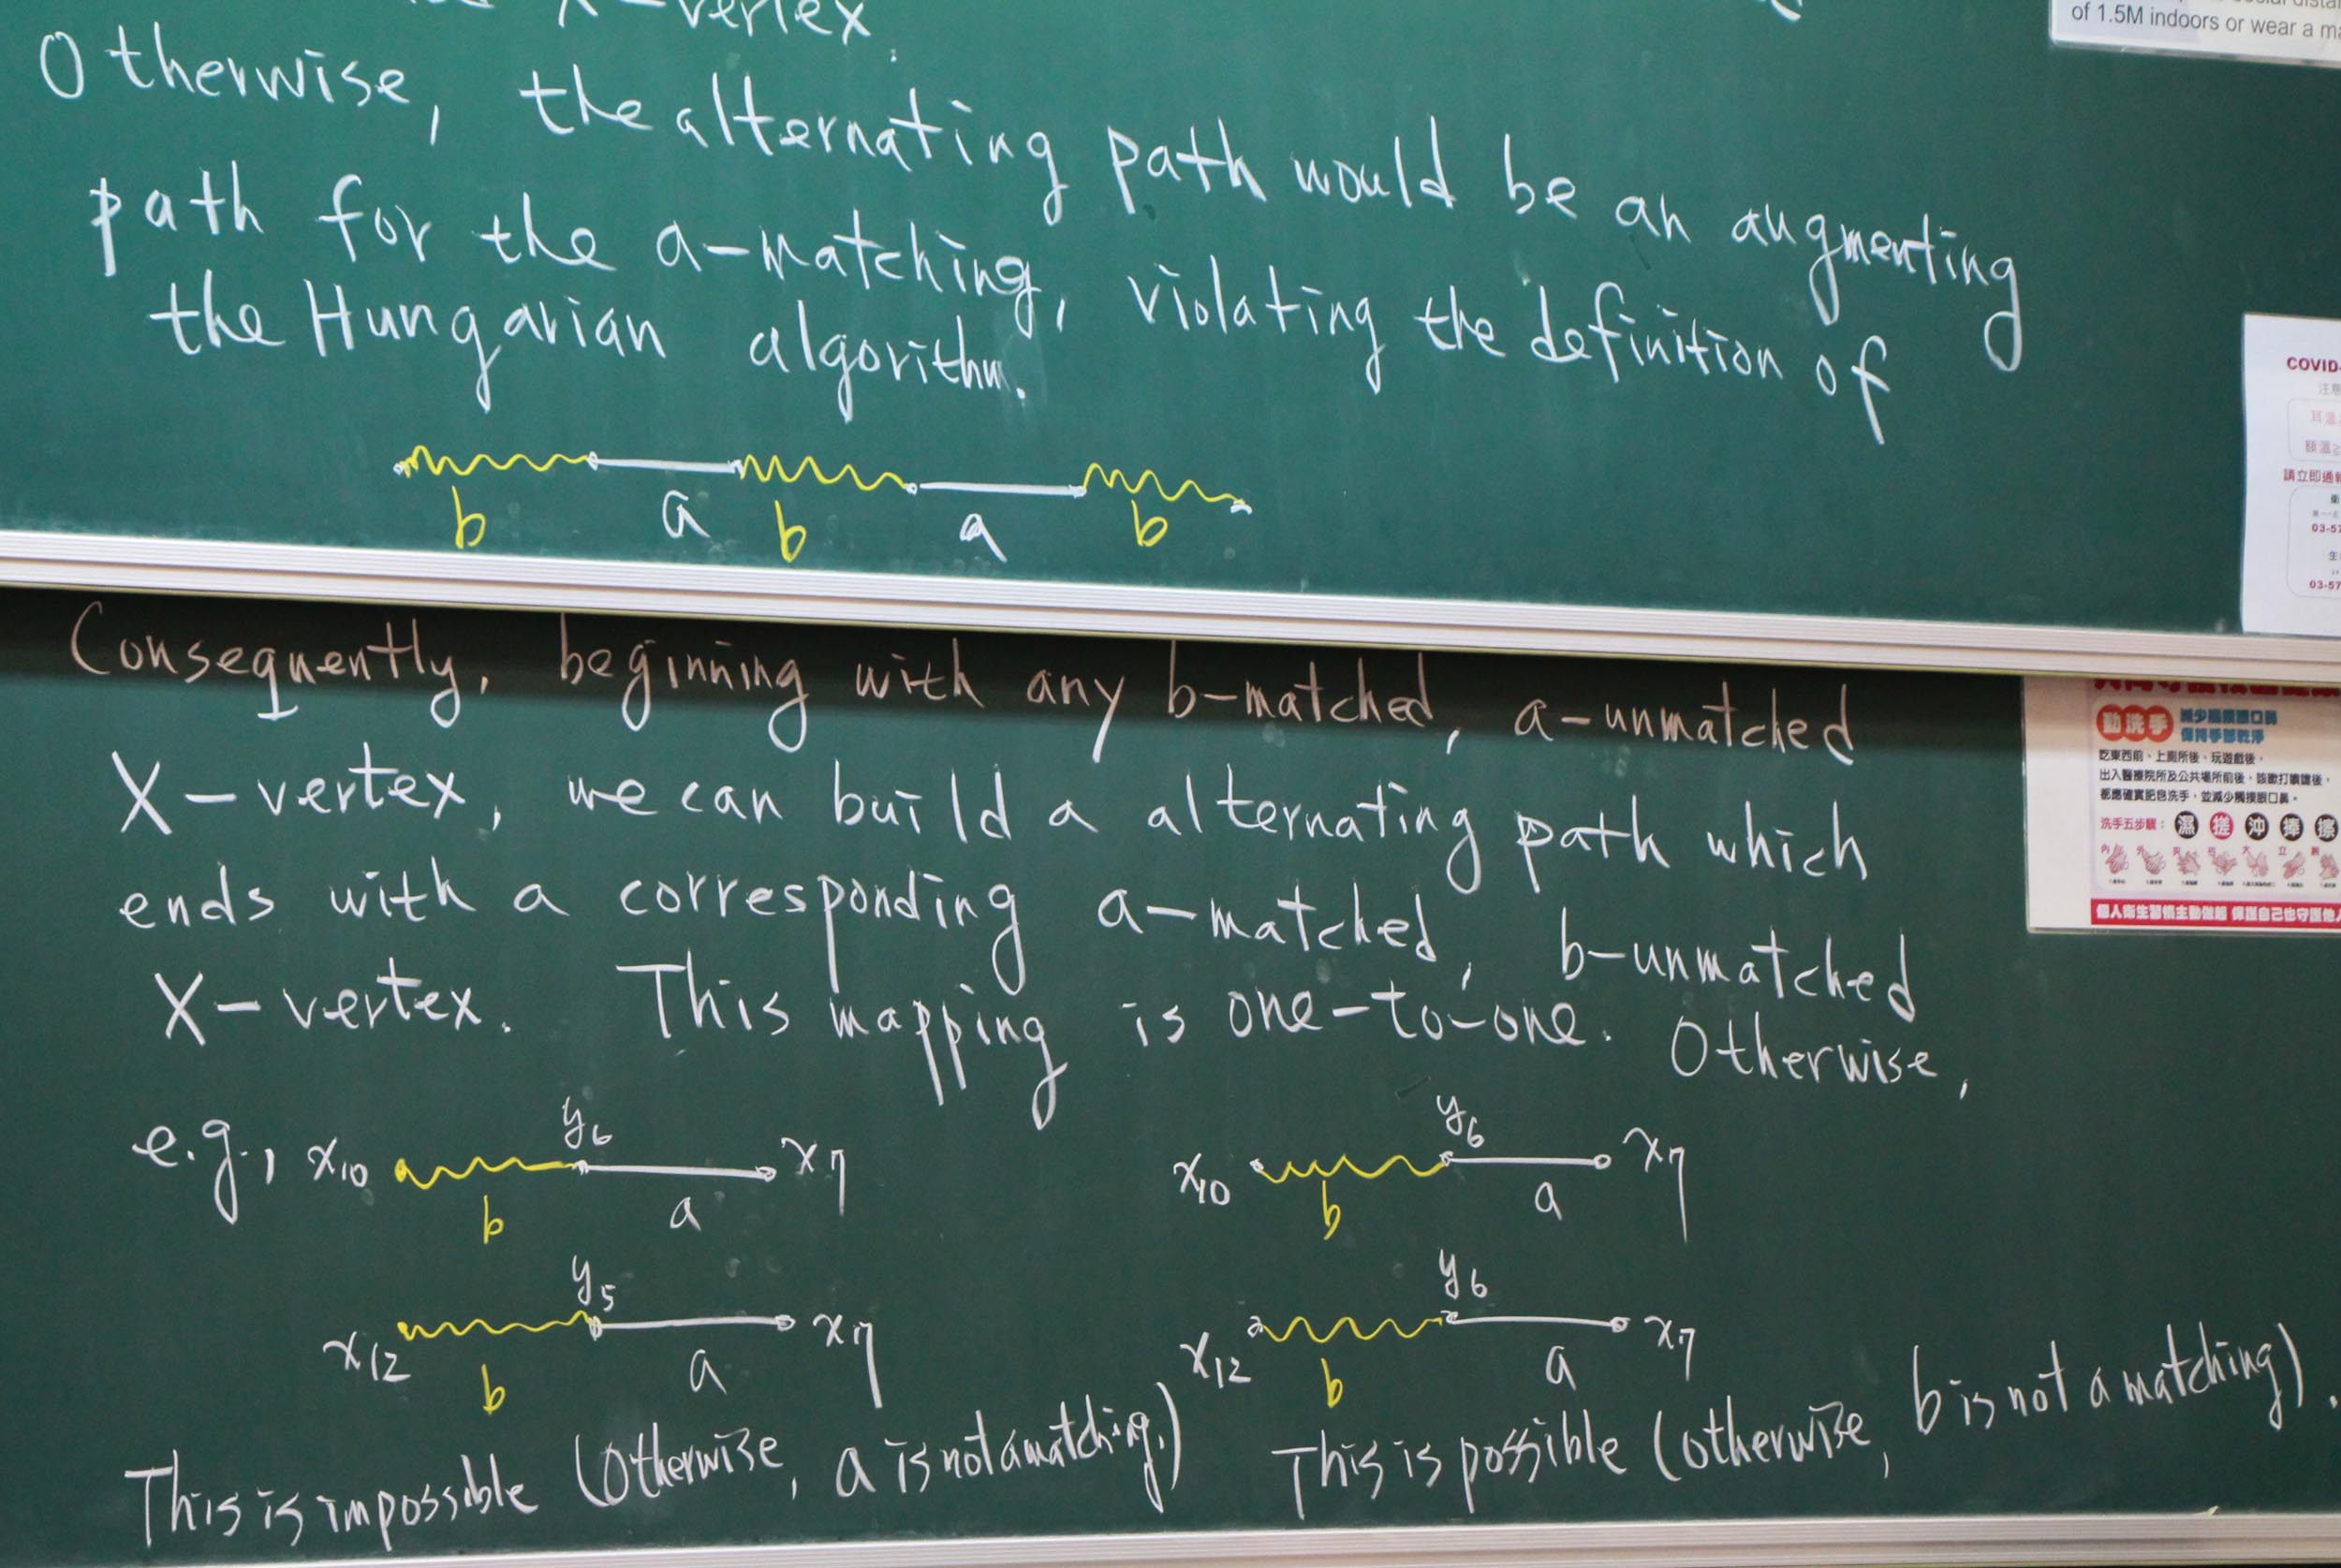 X-vertex.
Otherwise, the alternating path would be an augmenting
path for the a-matching, violating the definition of
the Hungarian algorithm.
b a b a b
Consequently, beginning with any b-matched, a-unmatched
X-vertex, we can build a alternating path which
ends with a corresponding a-matched, b-unmatched
X-vertex. This mapping is one-to-one. Otherwise,
e.g., x10 y6 x7
b a
x12 y5 x7
b a
This is impossible (Otherwise, a is not a matching.)
x10 y6 x7
b a
x12 y6 x7
b a
This is possible (otherwise, b is not a matching).
of 1.5M indoors or wear a
COVID-
請立即通
03-57
03-57
勤洗手
減少觸摸眼口鼻
保持手部乾淨
吃東西前、上廁所後、玩遊戲後，
出入醫療院所及公共場所前後，咳嗽打噴嚏後，
都應確實肥皂洗手，並減少觸摸眼口鼻。
洗手五步驟：濕 搓 沖 捧 擦
個人衛生習慣主動做起 保護自己也守護他人